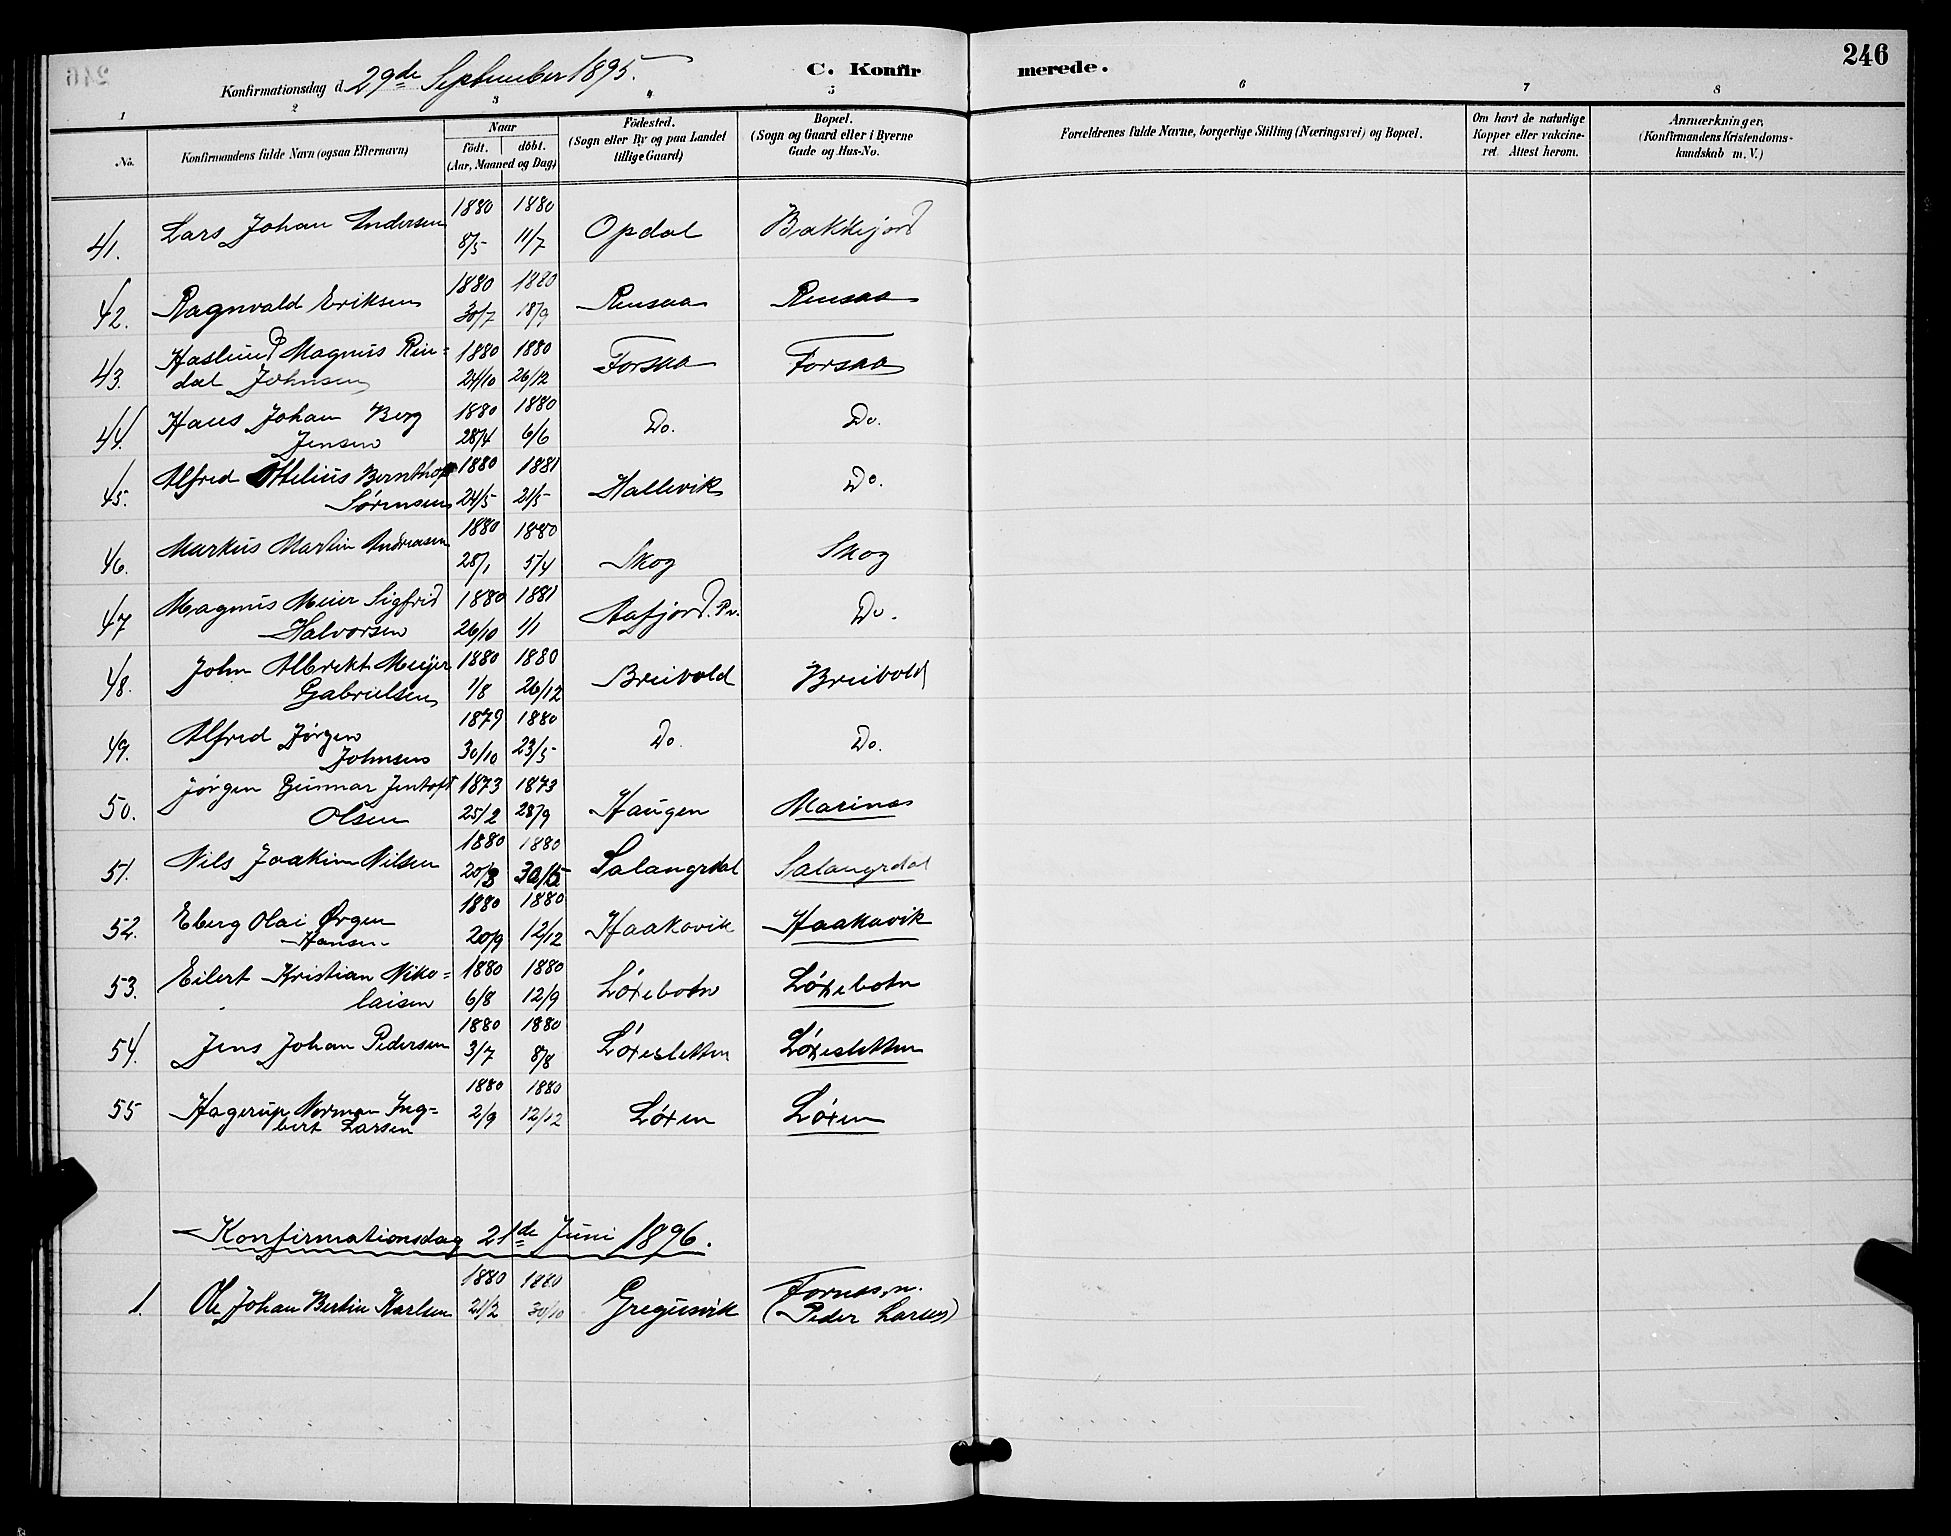 246
Konfirmationsdag d. 29de September 1895.
C. Konfirmerede.
1 2 3 4 5 6 7 8
No.
Konfirmandens fulde Navn (ogsaa Efternavn)
Naar
födt. döbt.
(Aar, Maaned og Dag)
Födested.
(Sogn eller By og paa Landet
tillige Gaard)
Bopæl.
(Sogn og Gaard eller i Byerne
Gade og Hus-No.
Forældrenes fulde Navne, borgerlige Stilling (Næringsvei) og Bopæl.
Om havt de naturlige
Kopper eller vakcine-
ret. Attest herom.
Anmærkninger,
(Konfirmandens Kristendoms-
kundskab m. V.)
41. Lars Johan Andersen 1880 8/5 1880 11/7 Opdal Bakkejord
42. Ragnvald Eriksen 1880 30/7 1880 18/9 Rensaa Rensaa
43. Haslund Magnus Rin=
dal Johnsen 1880 24/10 1880 26/12 Forsaa Forsaa
44. Hans Johan Berg
Jensen 1880 28/4 1880 6/6 Do. Do.
45. Alfred Ottelius Bernthof
Sørensen 1880 24/5 1881 21/5 Hallevik Do.
46. Markus Martin Andreasen 1880 28/1 1880 5/4 Skog Skog
47 Magnus Meier Sigfrid
Halvorsen 1880 26/10 1881 1/1 Aafjord. Pr. Do.
48. John Albrekt Meyer
Gabrielsen 1880 1/8 1880 26/12 Breivold Breivold
49. Alfred Jørgen
Johnsen 1879 30/10 1880 23/5 Do. Do.
50. Jørgen Gunnar Jentoft
Olsen 1873 25/2 1873 28/9 Haugen Marines
51. Nils Joakim Nilsen 1880 20/3 1880 30/5 Salangsdal Salangsdal
52. Eberg Olai Ørgen
Hansen 1880 20/9 1880 12/12 Haakavik Haakavik
53. Eilert Kristian Niko=
laisen 1880 6/8 1880 12/9 Løxebotn Løxebotn
54. Jens Johan Pedersen 1880 3/7 1880 8/8 Løxesletten Løxesletten
55 Hagerup Norman Ing=
bert Larsen 1880 2/9 1880 12/12 Løxen Løxen
Konfirmationsdag 21de Juni 1896.
1. Ole Johan Bertin Karlsen 1880 21/2 1880 30/10 Gregusvik Fornes, n.
(Peder Larsen)